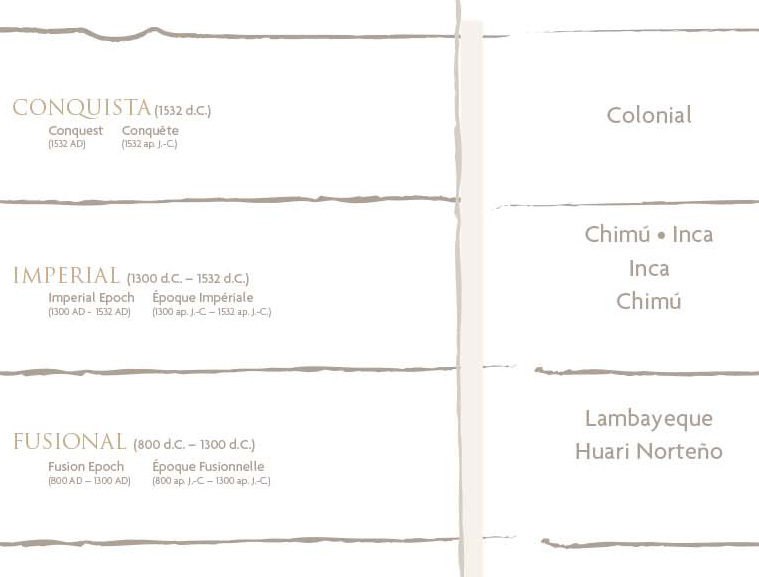 CONQUISTA (1532 d.C.)
Conquest Conquête
(1532 AD) (1532 ap. J.-C.)
Colonial
IMPERIAL (1300 d.C. – 1532 d.C.)
Imperial Epoch Époque Impériale
(1300 AD - 1532 AD) (1300 ap. J.-C. – 1532 ap. J.-C.)
Chimú • Inca
Inca
Chimú
FUSIONAL (800 d.C. – 1300 d.C.)
Fusion Epoch Époque Fusionnelle
(800 AD – 1300 AD) (800 ap. J.-C. – 1300 ap. J.-C.)
Lambayeque
Huari Norteño